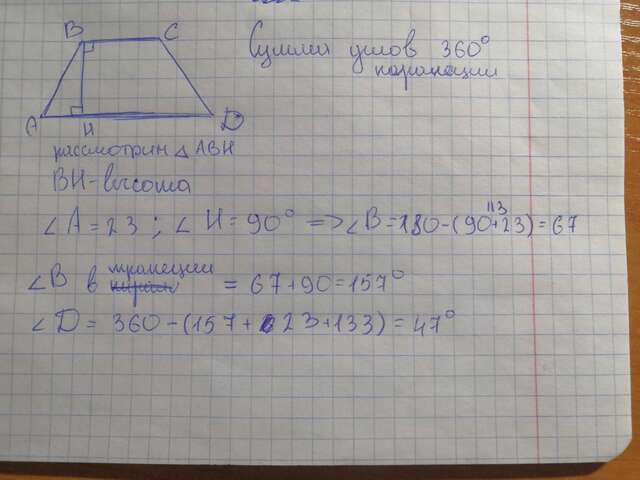 B C
A H D
Сумма углов 360°
парапеции
рассмотрим △ ABH
BH-высота
∠A = 23 ; ∠H = 90° => ∠B = 180-(90+23) = 67
113
∠B в трапеции = 67+90=157°
∠D = 360-(157+23+133) = 47°